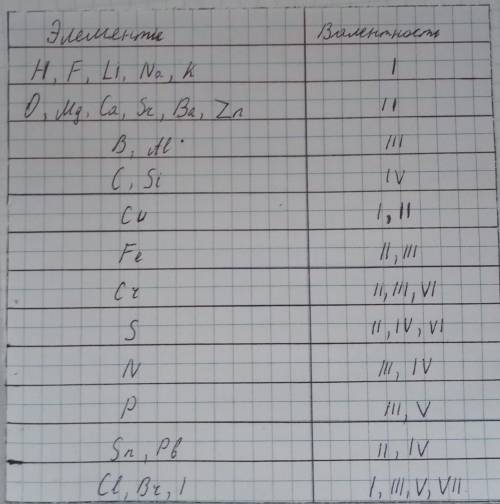 Элементы Валентность
H, F, Li, Na, K I
O, Mg, Ca, Sr, Ba, Zn II
B, Al III
C, Si IV
Cu I, II
Fe II, III
Cr II, III, VI
S II, IV, VI
N III, IV
P III, V
Sn, Pb II, IV
Cl, Br, I I, III, V, VII